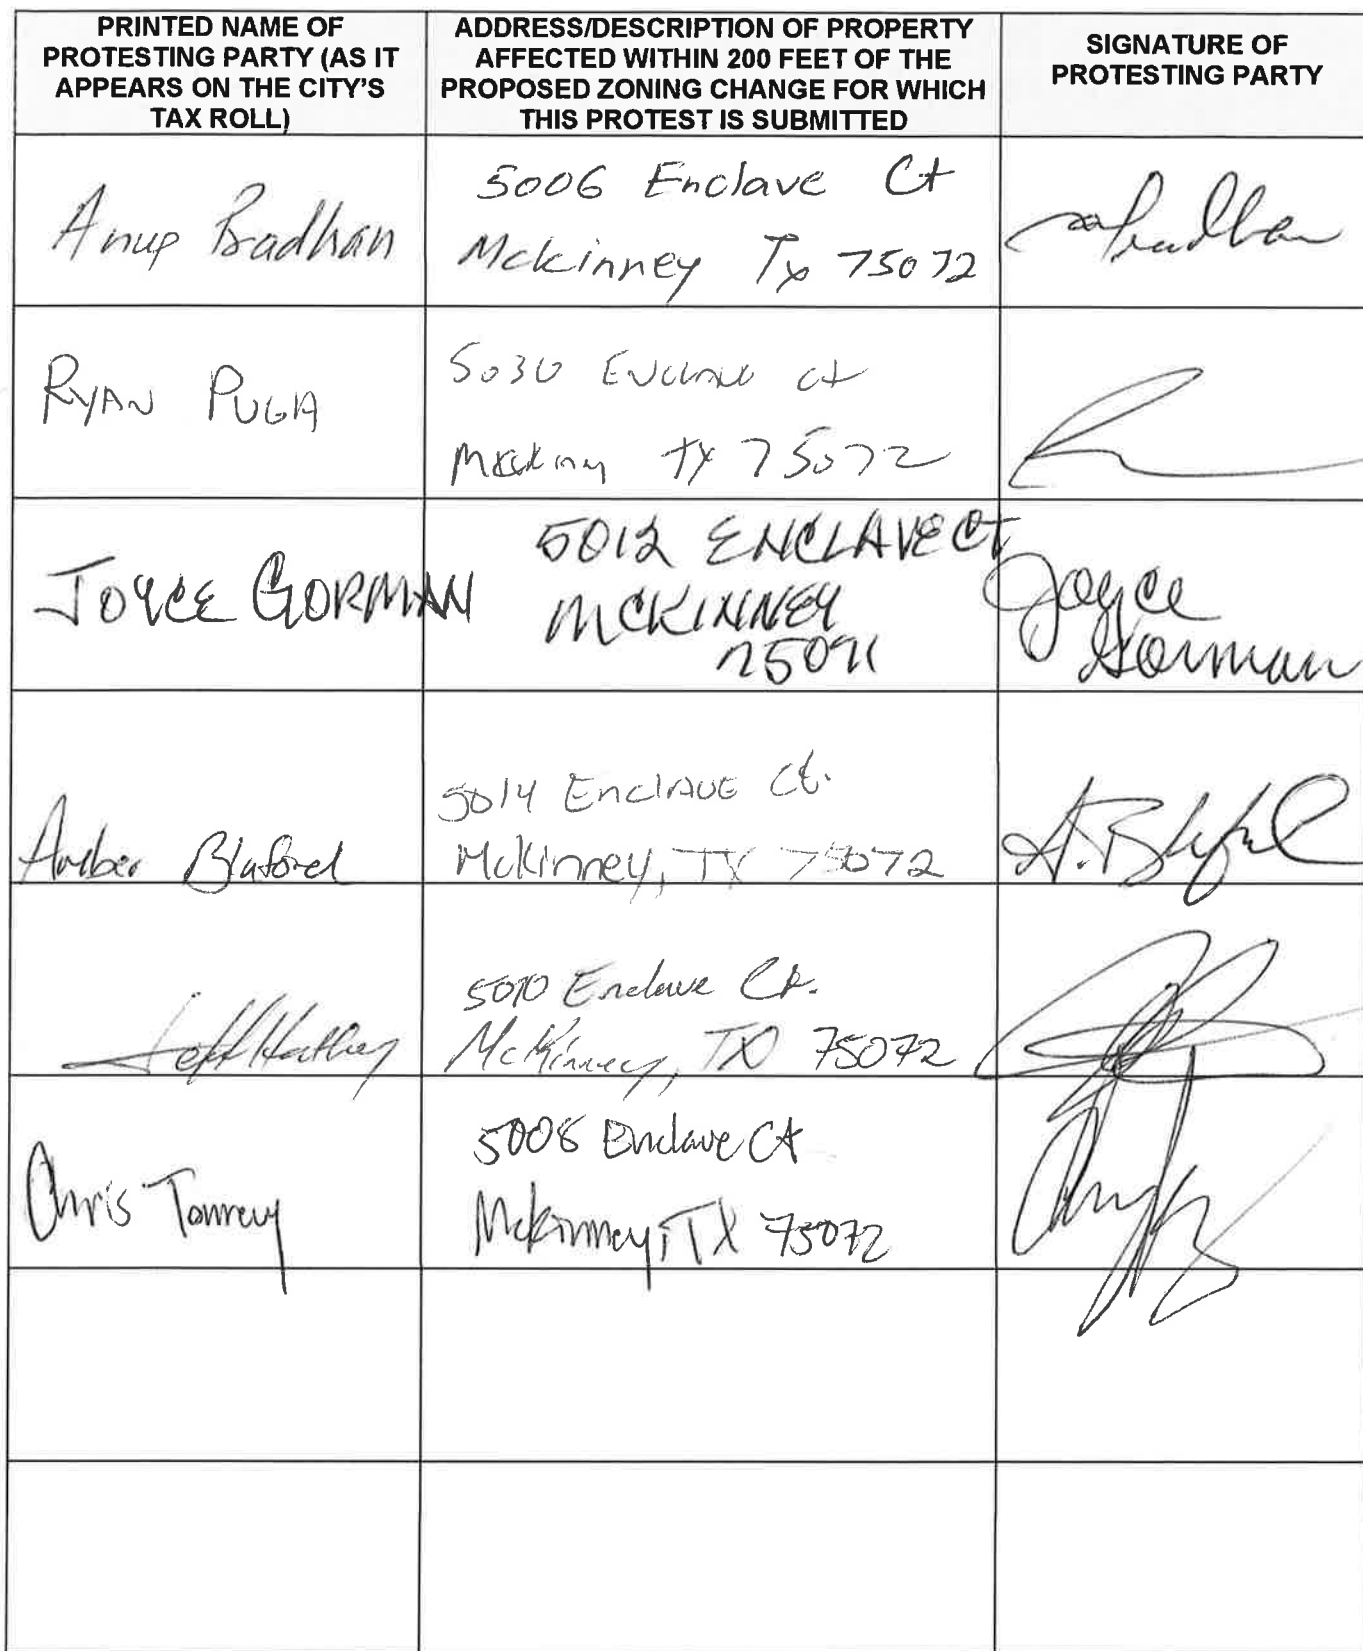 PRINTED NAME OF
PROTESTING PARTY (AS IT
APPEARS ON THE CITY'S
TAX ROLL)
ADDRESS/DESCRIPTION OF PROPERTY
AFFECTED WITHIN 200 FEET OF THE
PROPOSED ZONING CHANGE FOR WHICH
THIS PROTEST IS SUBMITTED
SIGNATURE OF
PROTESTING PARTY
Anup Pradhan
5006 Enclave Ct
Mckinney Tx 75072
RYAN PUGA
5030 Enclave ct
TX 75072
JOYCE GORMAN
5012 ENCLAVE CT
MCKINNEY
75071
Joyce
Gorman
Amber Bluford
5014 Enclave Ct.
McKinney, TX 75072
A. Bluford
Jeff
5010 Enclave Ct.
McKinney, TX 75072
Chris
5008 Enclave Ct
McKinney, TX 75072